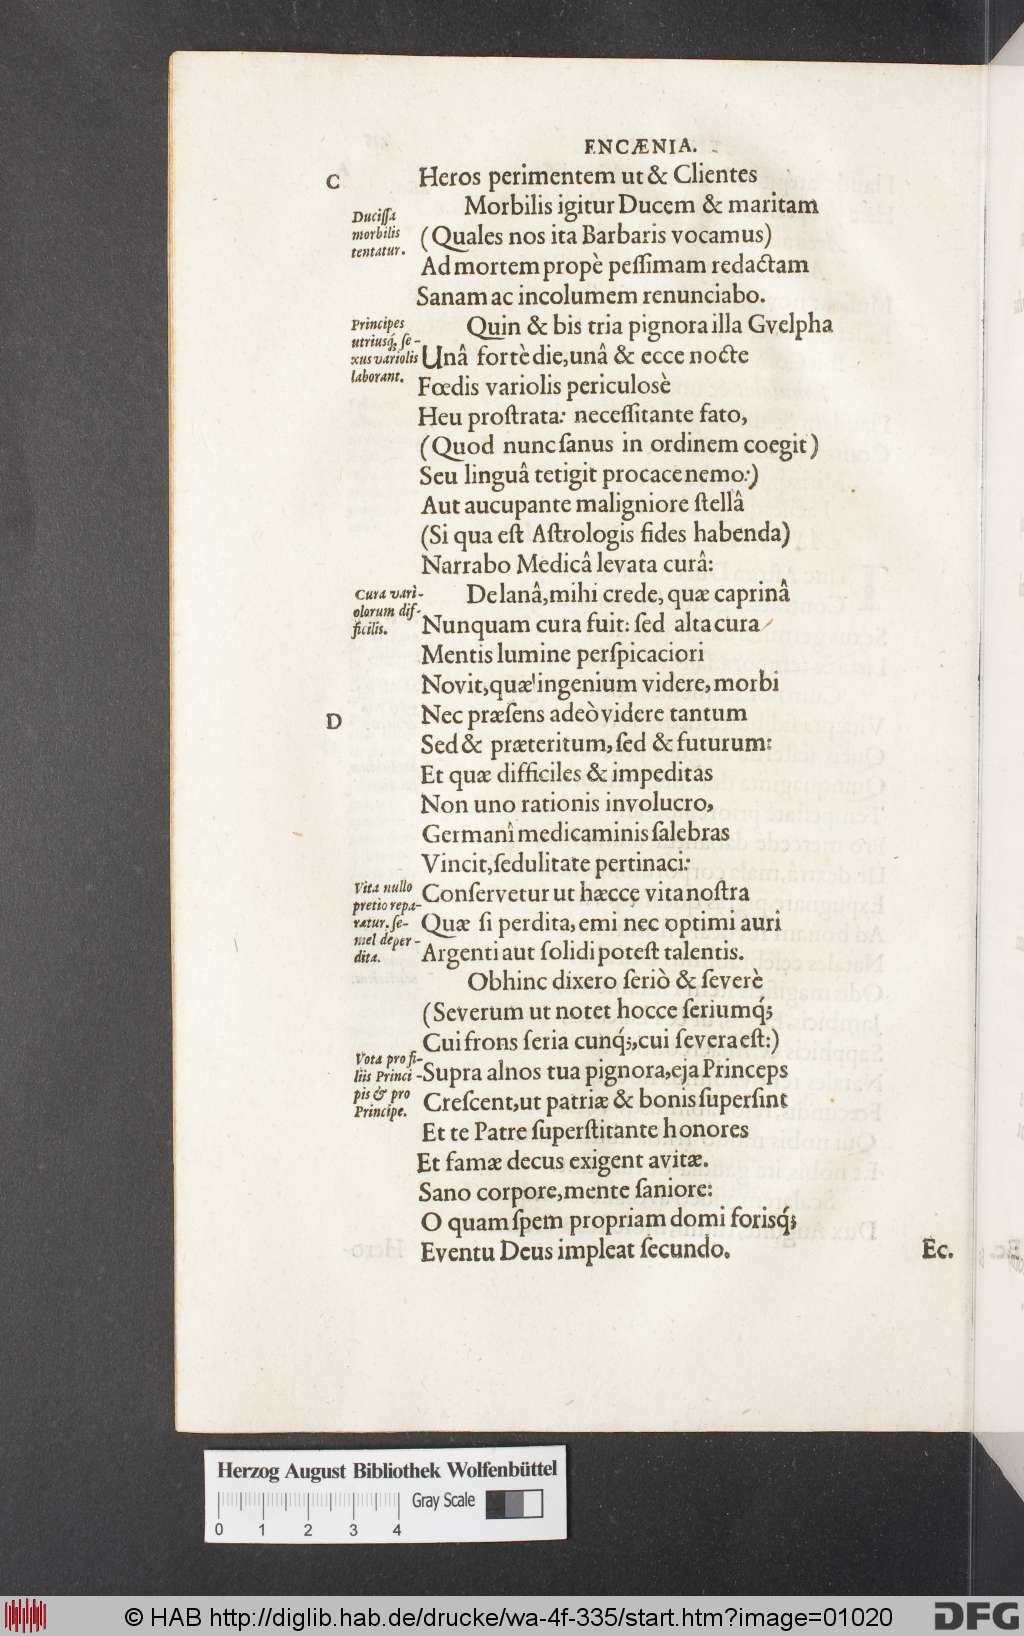 ENCÆNIA.
C
Heros perimentem ut & Clientes
Morbilis igitur Ducem & maritam
Ducissa
morbilis
tentatur.
(Quales nos ita Barbaris vocamus)
Ad mortem propè peſſimam redactam
Sanam ac incolumem renunciabo.
Principes
utriusq́; ſe-
xus variolis
laborant.
Quin & bis tria pignora illa Gvelpha
Unâ fortè die, unâ & ecce nocte
Fœdis variolis periculosè
Heu proſtrata: neceſſitante fato,
(Quod nunc ſanus in ordinem coegit)
Seu linguâ tetigit procace nemo:)
Aut aucupante maligniore ſtellâ
(Si qua eſt Aſtrologis fides habenda)
Narrabo Medicâ levata curâ:
Cura vari-
olorum dif-
ficilis.
De lanâ, mihi crede, quæ caprinâ
Nunquam cura fuit: ſed alta cura
Mentis lumine perſpicaciori
Novit, quæ ingenium videre, morbi
D
Nec præſens adeò videre tantum
Sed & præteritum, ſed & futurum:
Et quæ difficiles & impeditas
Non uno rationis involucro,
Germani medicaminis ſalebras
Vincit, ſedulitate pertinaci:
Vita nullo
pretio repa-
ratur. ſe-
mel deper-
dita.
Conſervetur ut hæcce vita noſtra
Quæ ſi perdita, emi nec optimi auri
Argenti aut ſolidi poteſt talentis.
Obhinc dixero ſeriò & ſeverè
(Severum ut notet hocce ſeriumq́;
Cui frons ſeria cunq́;, cui ſevera eſt:)
Vota pro fi-
liis Princi-
pis & pro
Principe.
Supra alnos tua pignora, eja Princeps
Creſcent, ut patriæ & bonis ſuperſint
Et te Patre ſuperſtitante honores
Et famæ decus exigent avitæ.
Sano corpore, mente ſaniore:
O quam ſpem propriam domi forisq́;
Eventu Deus impleat ſecundo.
Ec.
Herzog August Bibliothek Wolfenbüttel
Gray Scale
0 1 2 3 4
© HAB http://diglib.hab.de/drucke/wa-4f-335/start.htm?image=01020
DFG